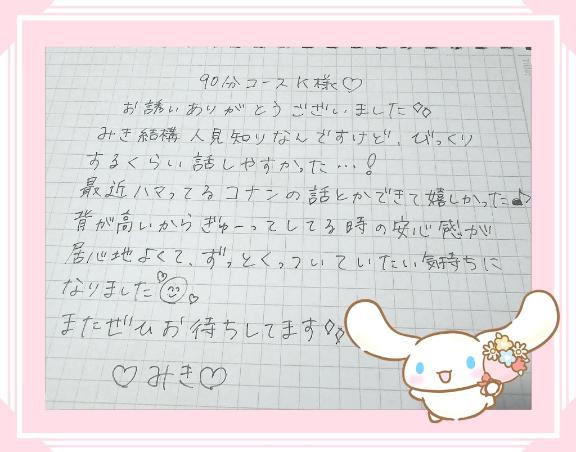 90分コースK様♡
お誘いありがとうございました♢♢
みき結構人見知りなんですけど、びっくり
するくらい話しやすかった…!
最近ハマってるコナンの話とかできて嬉しかった♪
背が高いからぎゅーってしてる時の安心感が
居心地よくて、ずっとくっついていたい気持ちに
なりました♡☺♡
またぜひお待ちしてます♢♢
♡みき♡